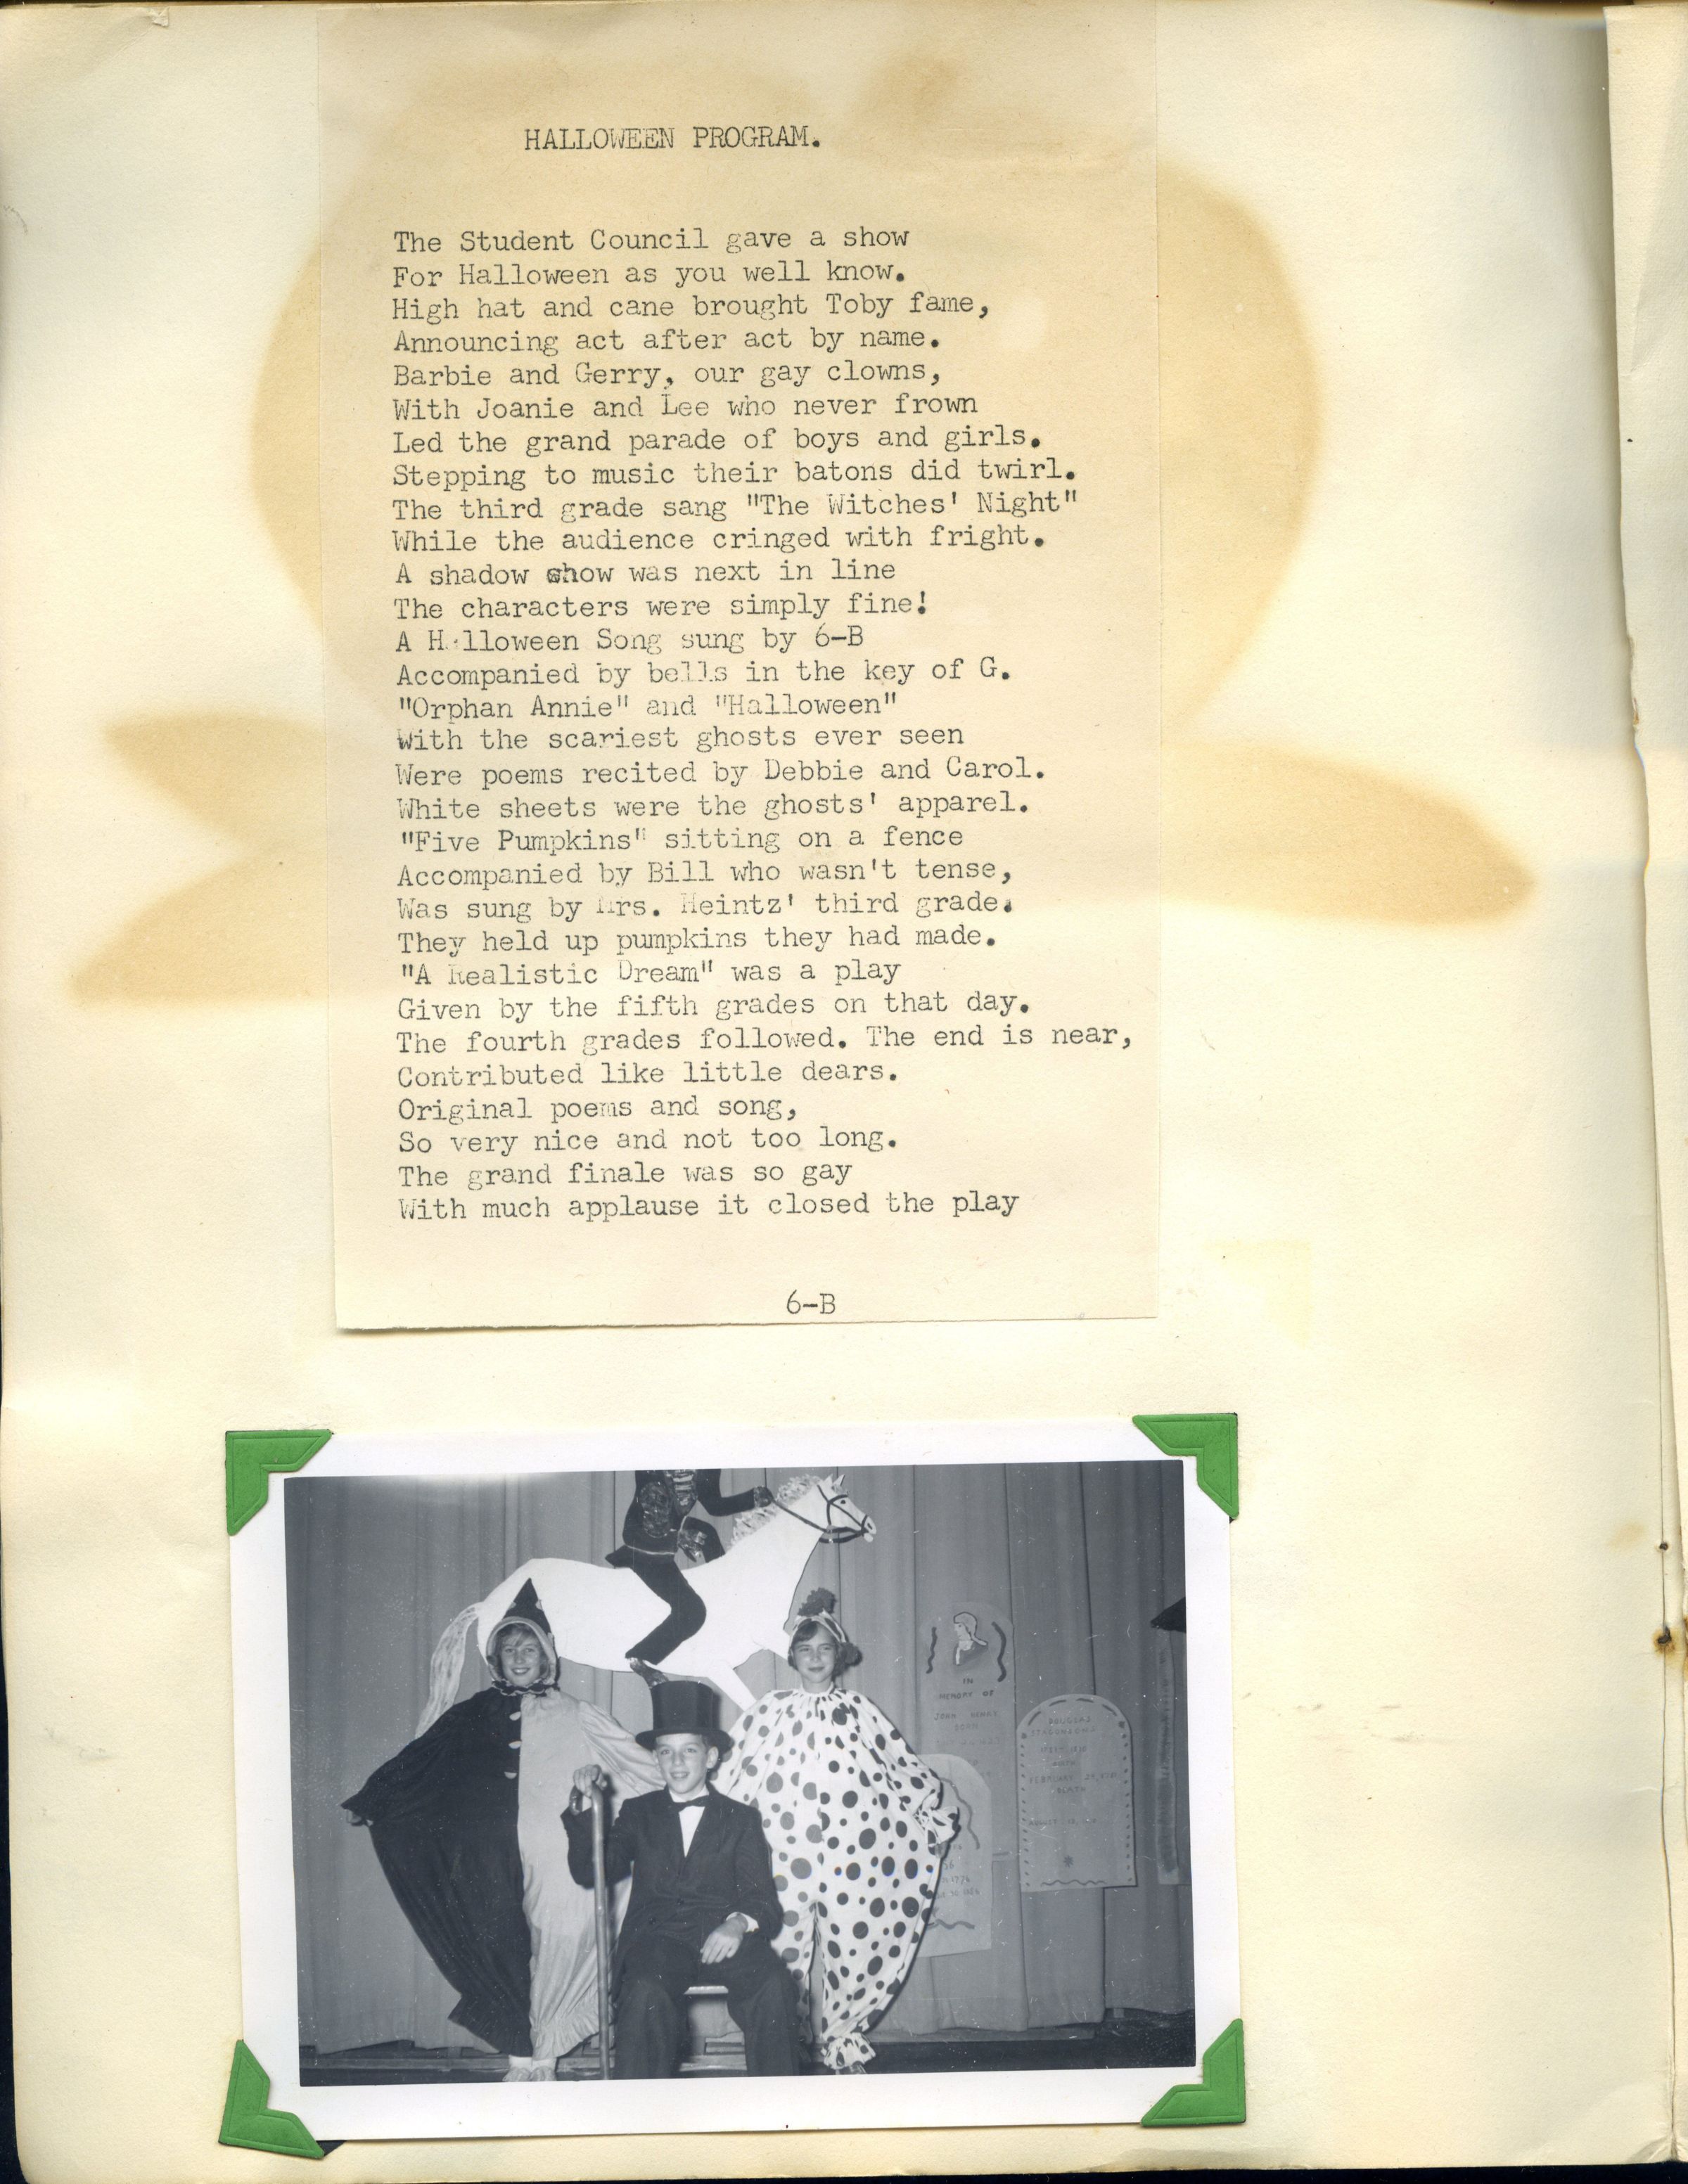 HALLOWEEN PROGRAM.
The Student Council gave a show
For Halloween as you well know.
High hat and cane brought Toby fame,
Announcing act after act by name.
Barbie and Gerry, our gay clowns,
With Joanie and Lee who never frown
Led the grand parade of boys and girls.
Stepping to music their batons did twirl.
The third grade sang "The Witches' Night"
While the audience cringed with fright.
A shadow show was next in line
The characters were simply fine!
A Halloween Song sung by 6-B
Accompanied by bells in the key of G.
"Orphan Annie" and "Halloween"
With the scariest ghosts ever seen
Were poems recited by Debbie and Carol.
White sheets were the ghosts' apparel.
"Five Pumpkins" sitting on a fence
Accompanied by Bill who wasn't tense,
Was sung by Mrs. Heintz' third grade.
They held up pumpkins they had made.
"A Realistic Dream" was a play
Given by the fifth grades on that day.
The fourth grades followed. The end is near,
Contributed like little dears.
Original poems and song,
So very nice and not too long.
The grand finale was so gay
With much applause it closed the play
6-B
IN
MEMORY OF
JOHN HENRY
BORN
DOUGLAS
FEBRUARY
DEATH
AUGUST
1776